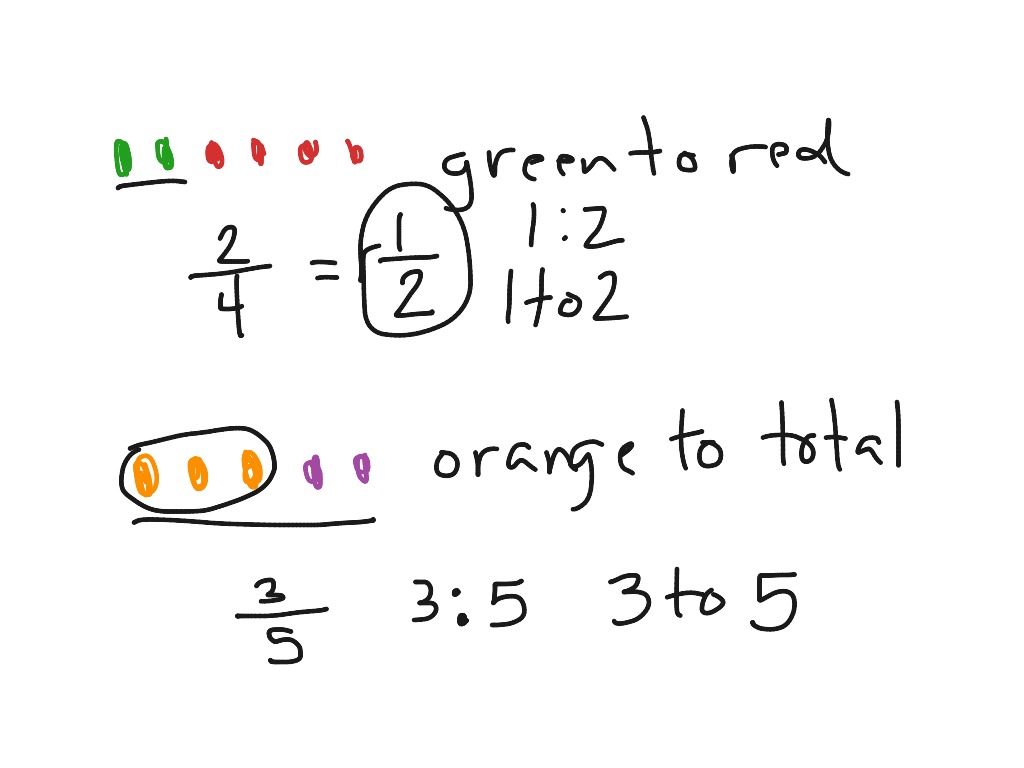 green to red
2/4 = 1/2 1:2
1 to 2
orange to total
3/5 3:5 3 to 5